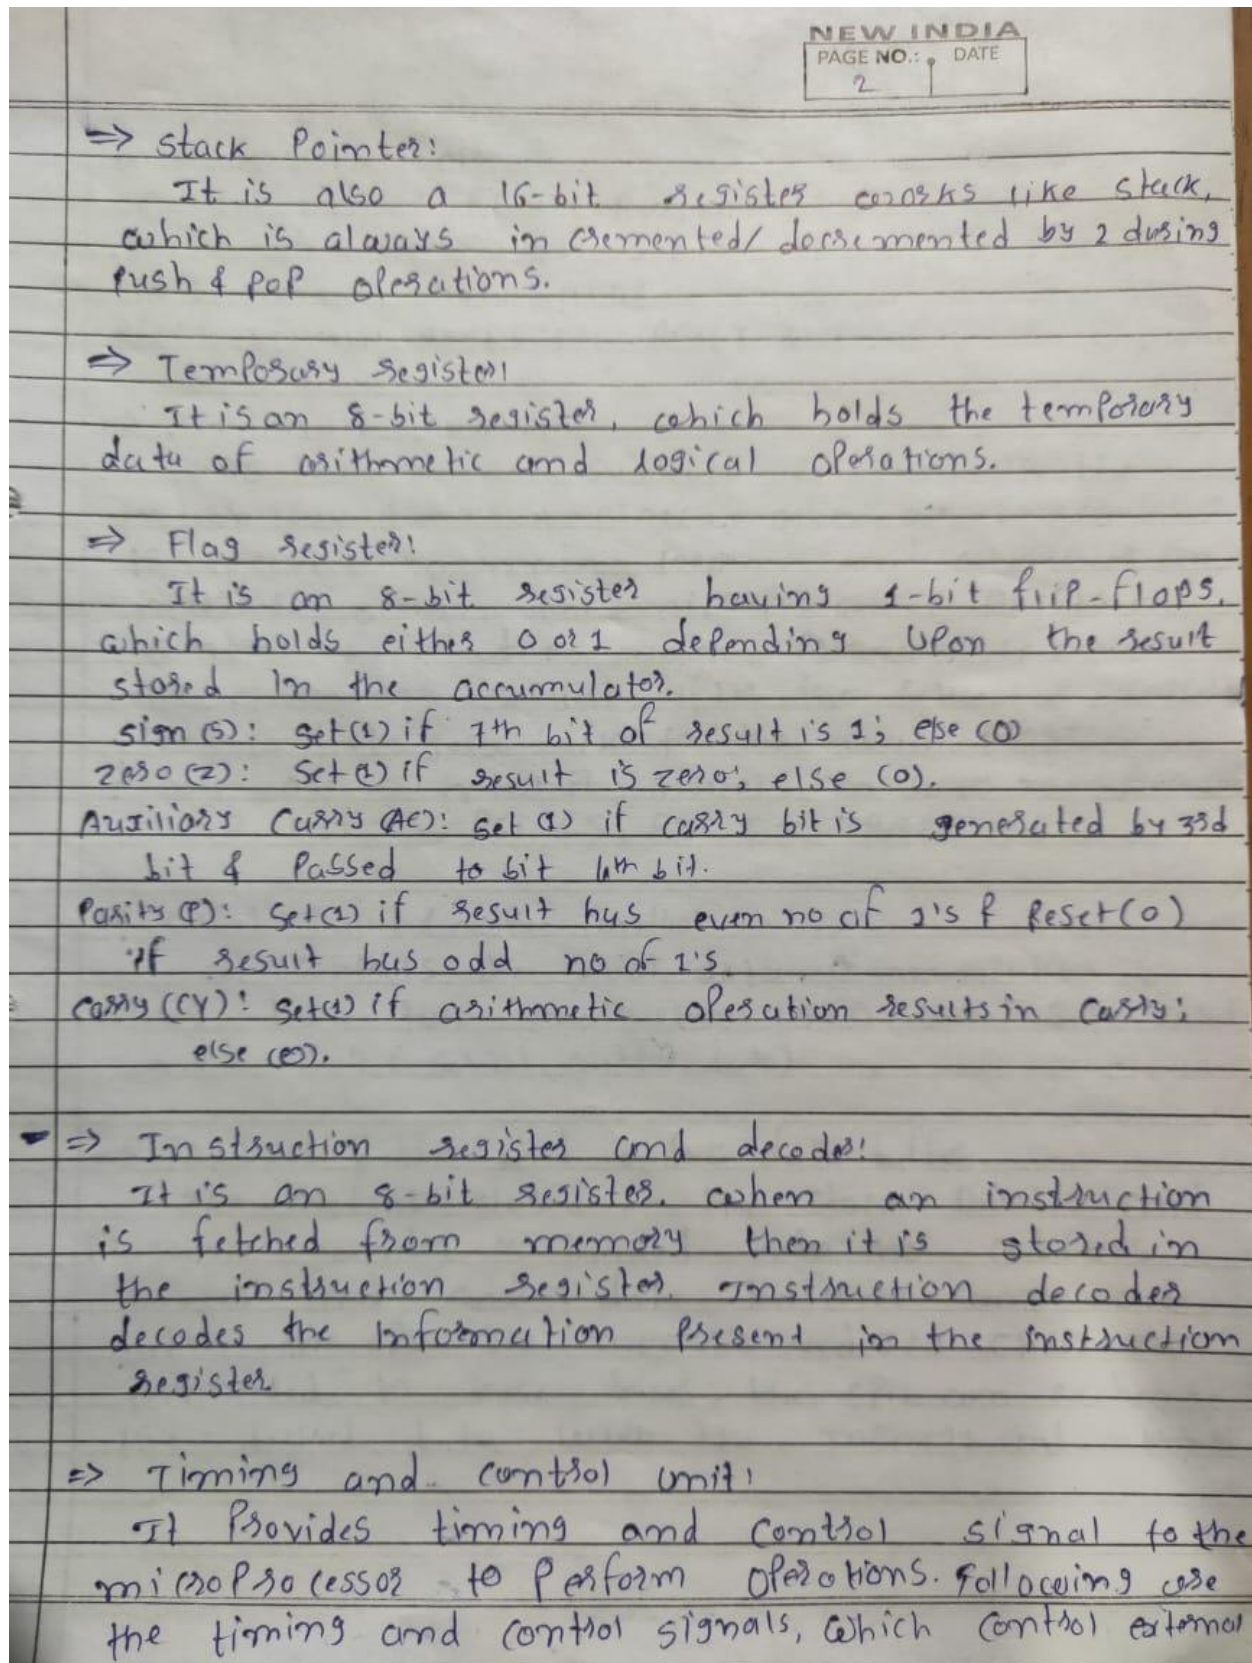 NEW INDIA
PAGE NO.: DATE
2
⇒ Stack Pointer:
It is also a 16-bit register works like stack,
which is always incremented/decremented by 2 during
Push & POP operations.
⇒ Temporary register:
It is an 8-bit register, which holds the temporary
data of arithmetic and logical operations.
⇒ Flag register:
It is an 8-bit register having 1-bit flip-flops,
which holds either 0 or 1 depending upon the result
stored in the accumulator.
sign (S): set (1) if 7th bit of result is 1; else (0)
zero (Z): set (1) if result is zero; else (0).
Auxiliary Carry (AC): set (1) if carry bit is generated by 3rd
bit & Passed to bit 4th bit.
Parity (P): set (1) if result has even no of 1's & Reset (0)
if result has odd no of 1's
carry (CY): set (1) if arithmetic operation results in carry;
else (0).
⇒ Instruction register and decoder:
It is an 8-bit register. when an instruction
is fetched from memory then it is stored in
the instruction register. Instruction decoder
decodes the Information Present in the instruction
register
⇒ Timing and control unit:
It Provides timing and control signal to the
microprocessor to Perform operations. Following are
the timing and control signals, which control external